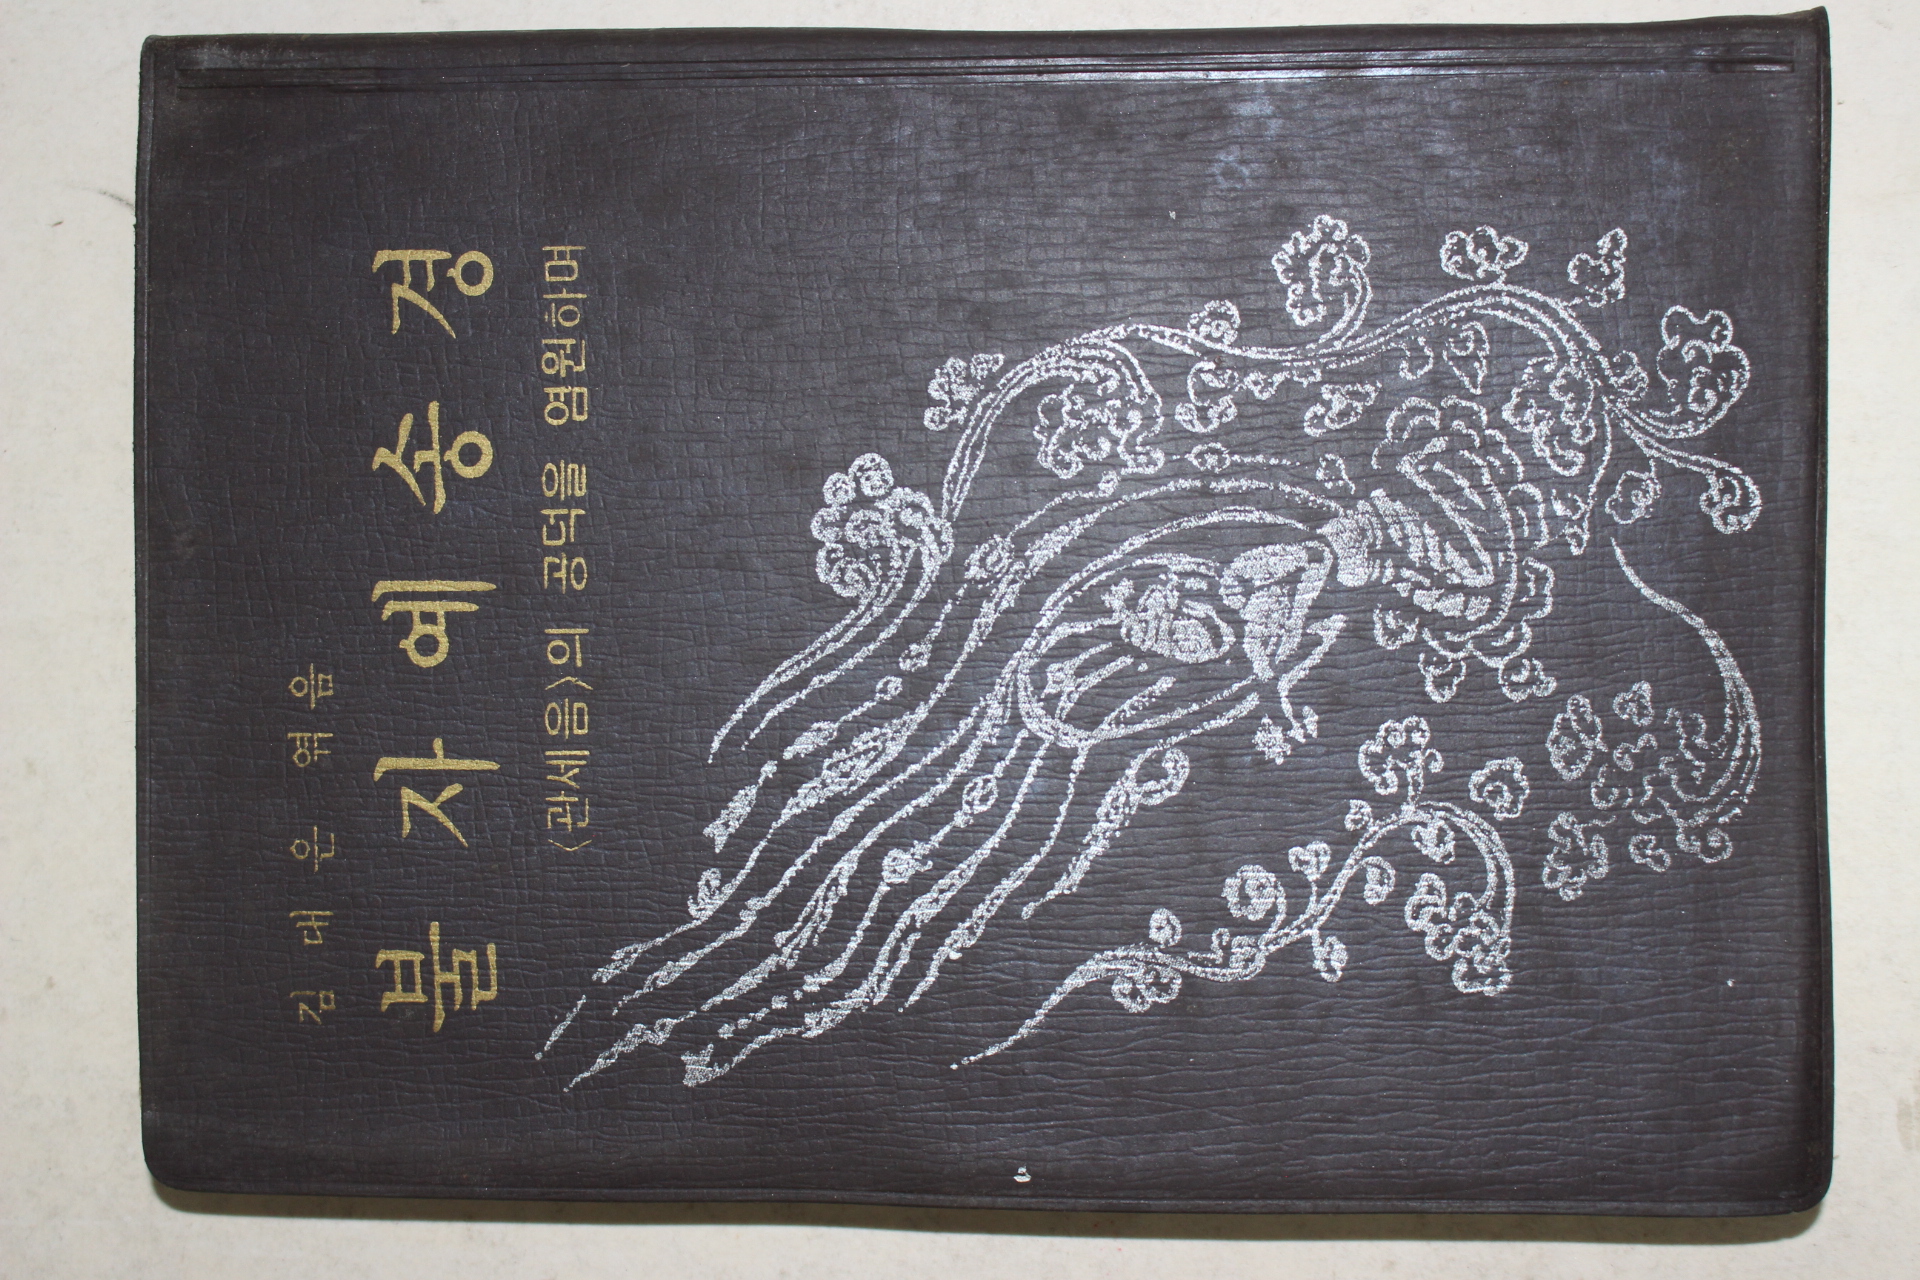 김대은 엮음
불자예송경
<관세음>의 공덕을 염원하며